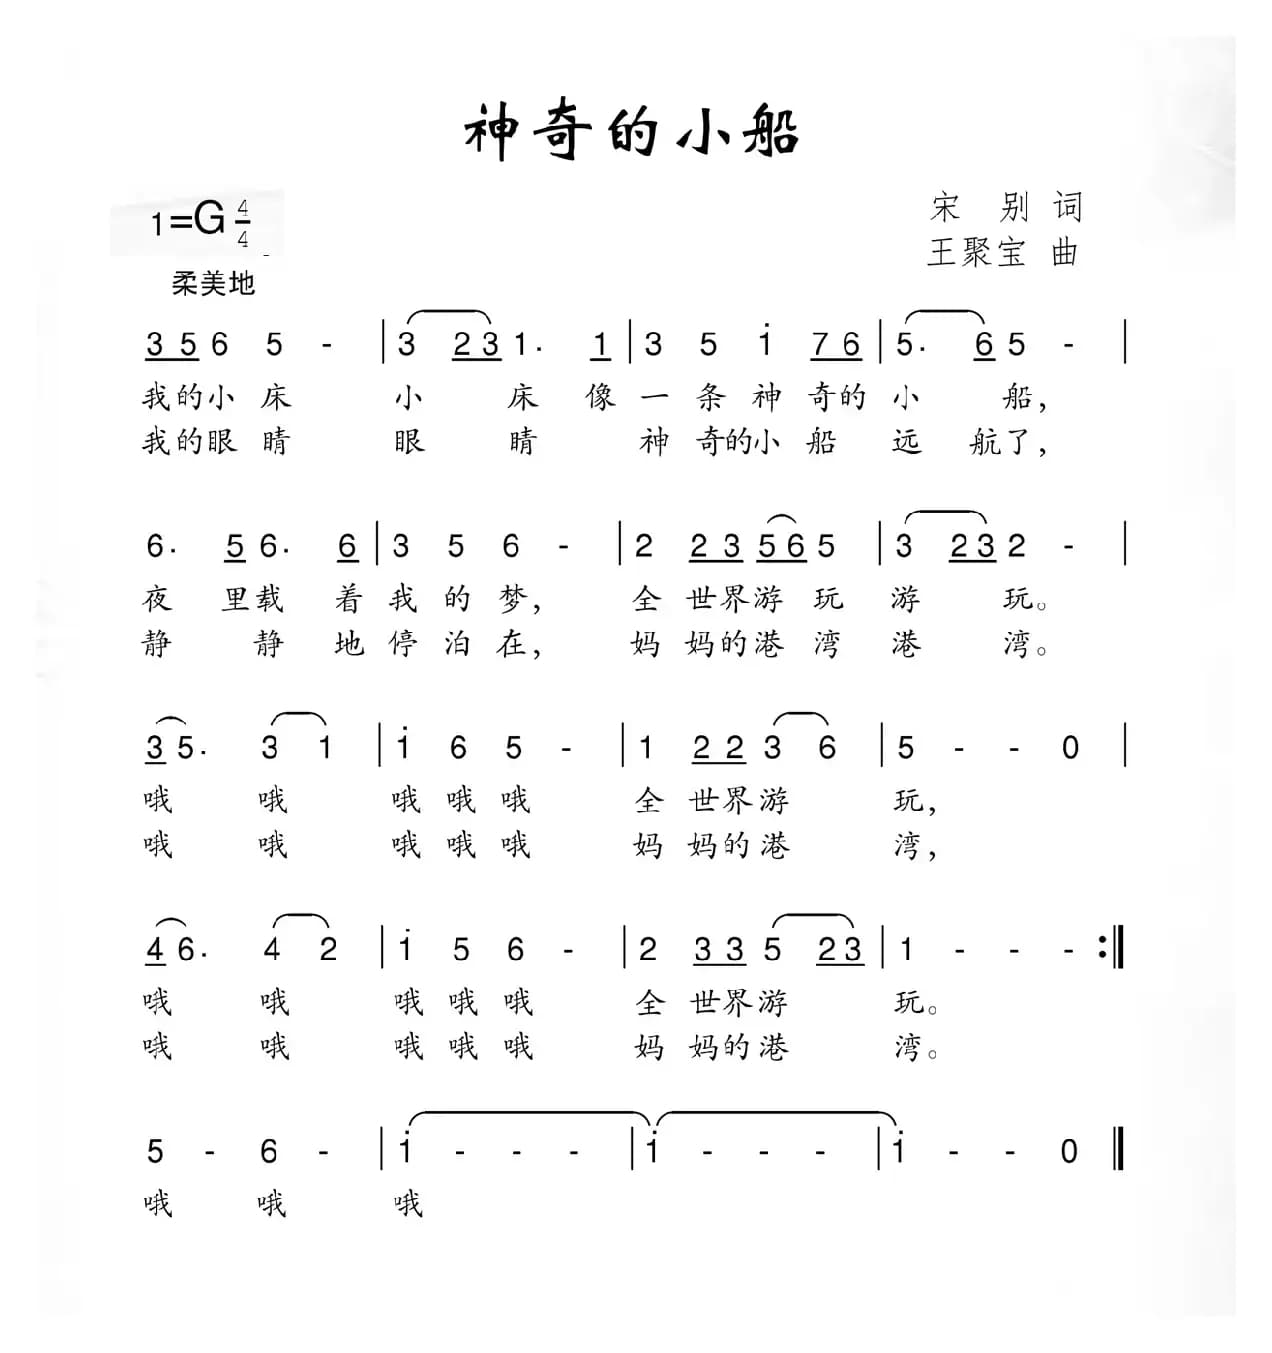 神奇的小船
1=G 4/4
宋 别 词
王聚宝 曲
柔美地
3 5 6 5 - | 3 2 3 1· 1 | 3 5 i 7 6 | 5· 6 5 - |
我的小床 小 床 像 一 条 神 奇的 小 船，
我的眼睛 眼 睛 神 奇的小 船 远 航了，
6· 5 6· 6 | 3 5 6 - | 2 2 3 5 6 5 | 3 2 3 2 - |
夜 里载 着 我 的 梦， 全 世界游 玩 游 玩。
静 静 地 停 泊 在， 妈 妈的港 湾 港 湾。
3 5· 3 1 | i 6 5 - | 1 2 2 3 6 | 5 - - 0 |
哦 哦 哦 哦 哦 全 世界游 玩，
哦 哦 哦 哦 哦 妈 妈的港 湾，
4 6· 4 2 | i 5 6 - | 2 3 3 5 2 3 | 1 - - - :‖
哦 哦 哦 哦 哦 全 世界游 玩。
哦 哦 哦 哦 哦 妈 妈的港 湾。
5 - 6 - | i - - - | i - - - | i - - 0 ‖
哦 哦 哦